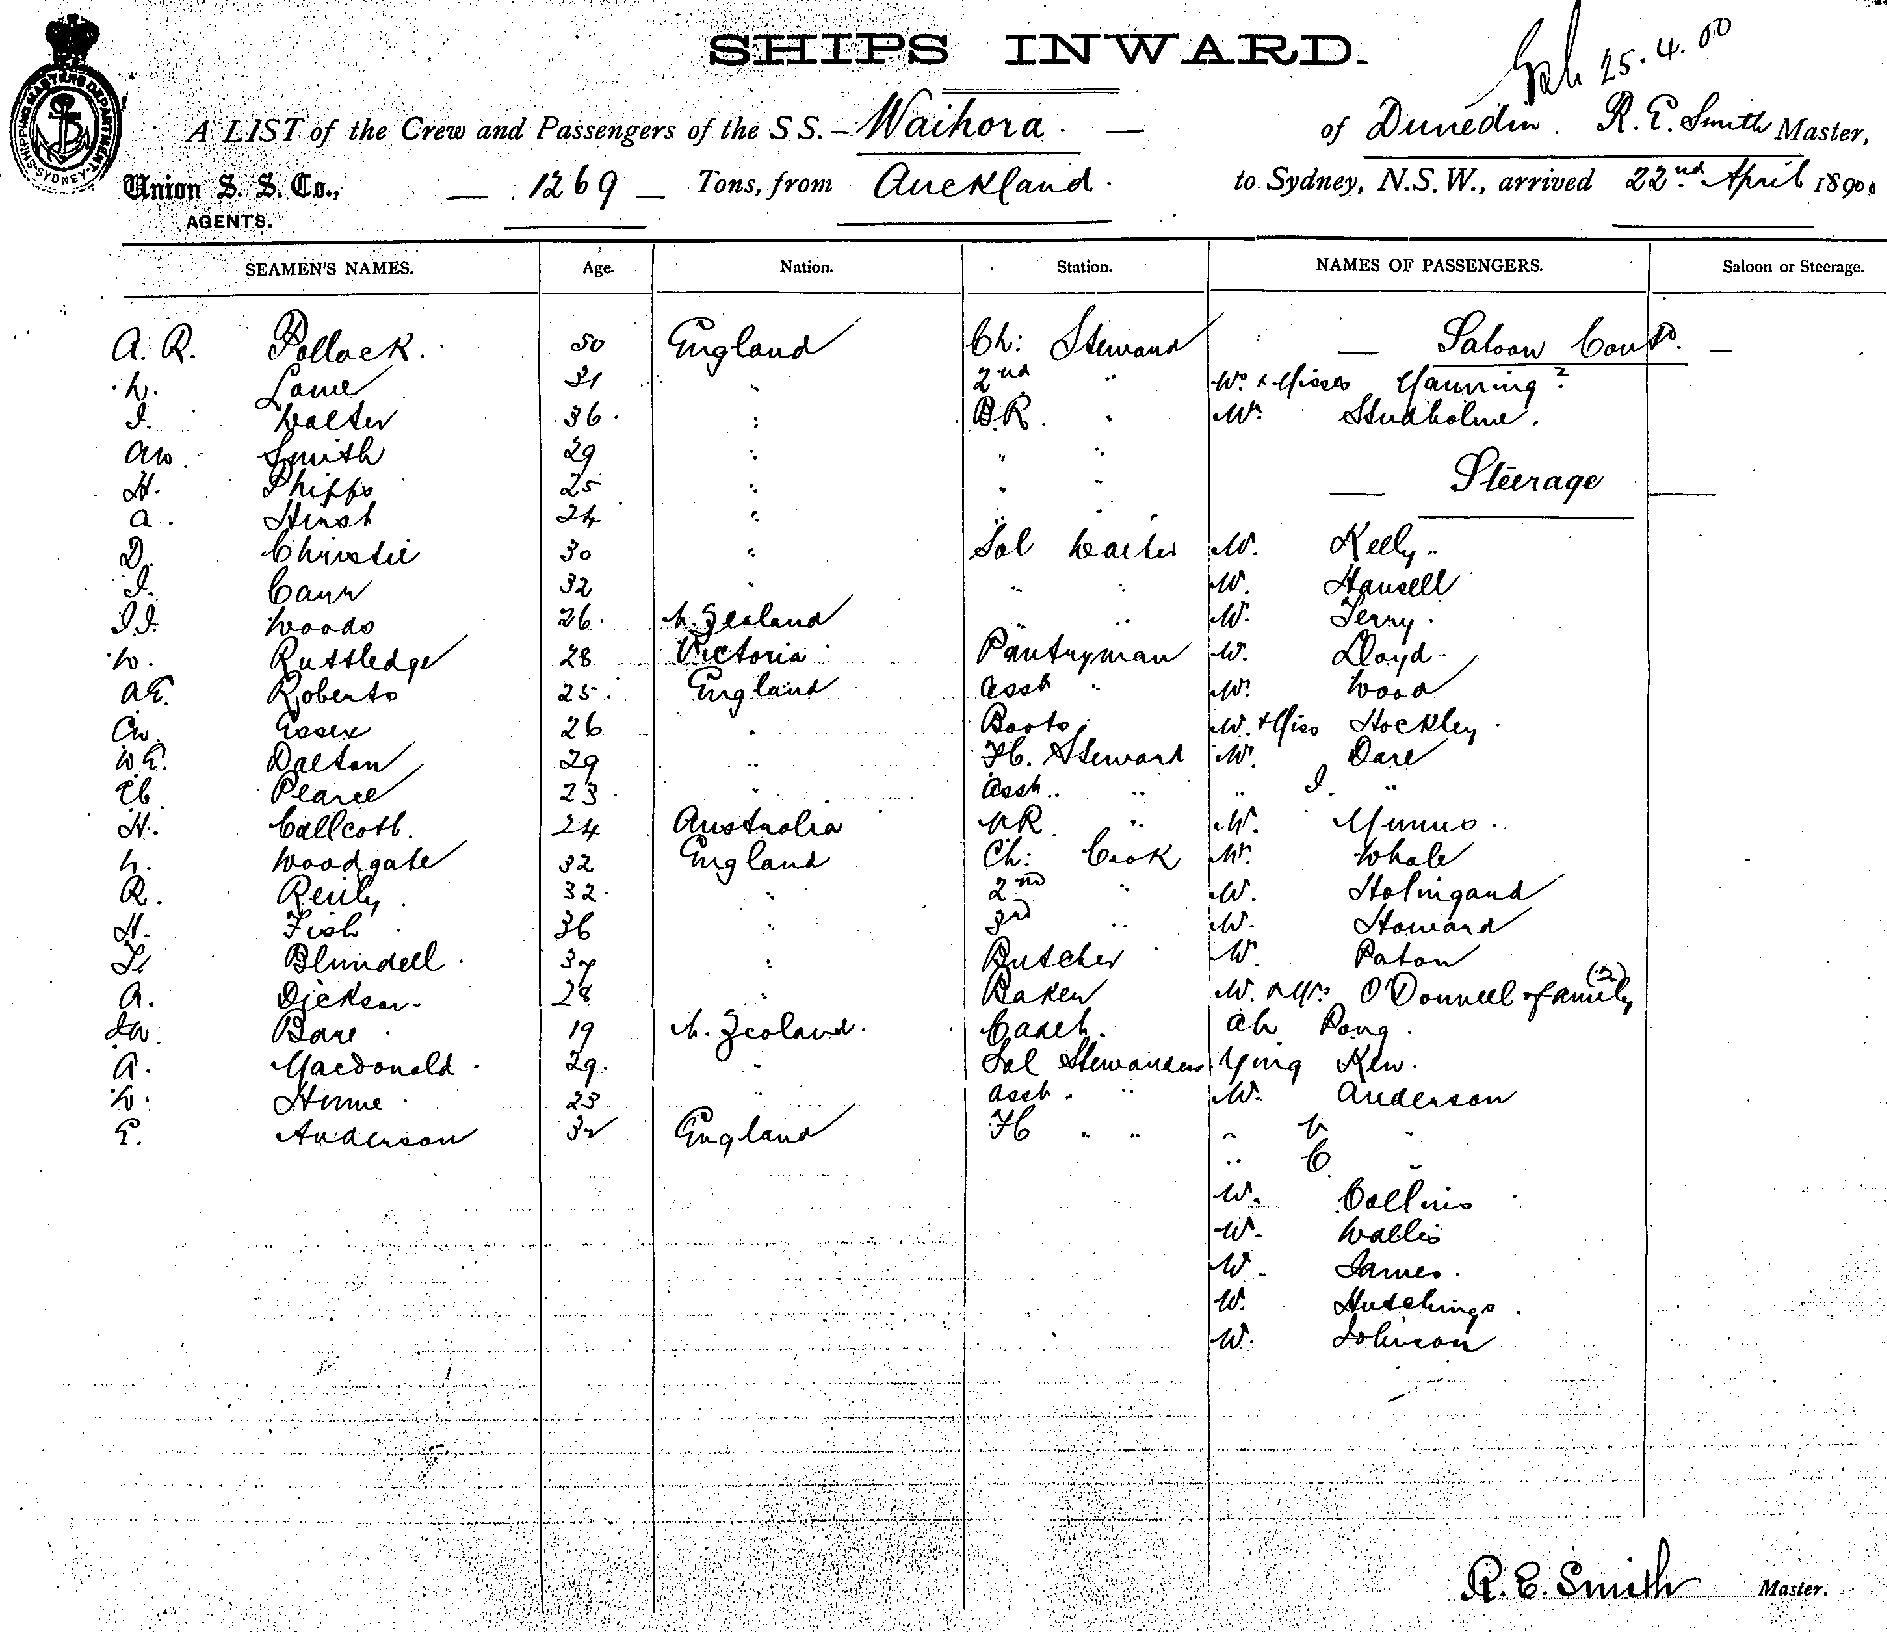 SHIPS INWARD.
25.4.00
A LIST of the Crew and Passengers of the S S. — Waihora. — of Dunedin. R. E. Smith Master,
Union S. S. Co., — 1269 — Tons, from Auckland. to Sydney, N.S.W., arrived 22nd April 1890
AGENTS.
SEAMEN'S NAMES. Age. Nation. Station. NAMES OF PASSENGERS. Saloon or Steerage.
A. R. Pollock. 50 England Ch: Steward — Saloon Contd. —
31 " 2nd " & Misses Manning 2
I. Walter 36 " B.R. " Mr. Studholme.
AW. Smith 29 " " "
H. Phipps 25 " " " — Steerage —
A. Hirst 24 " " "
D. Christie 30 " Sal Waiter Mr. Kelly.
I. Carr 32 " " " Mr. Hansell
I.I. Woods 26. N. Zealand " " Mr. Terry.
W. Ruttledge 28 Victoria Pantryman Mr. Lloyd
AE. Roberts 25. England Asst " Mr. Wood
AW. Essex 26 " Boots Mr. & Miss Hockley
WE. Dalton 29 " FC. Steward Mr. Dare
Pearce 23 " Asst. " " I. "
H. Callcott. 24 Australia " Mr. Munro.
W. Woodgate 32 England Ch: Cook Mr. Whale
R. Reily 32. " 2nd " Mr.
H. Fish 36 " 3rd " Mr. Howard
Blundell " Butcher Mr. Paton
A. Dickson. 28 " Baker Mr. & Mrs O'Donnell & family (2)
Bare 19 N. Zealand. Cadet. Ah Pong.
A. Macdonald 29. " Sal Stewardess Ying Kew.
W. Hume 23 " Asst. " Mr. Anderson
E. Anderson 32 England FC " " " W "
" C "
Mr. Collins
Mr. Wallis
Mr. James.
Mr. Hutchings.
Mr. Johnson
R. E. Smith Master.